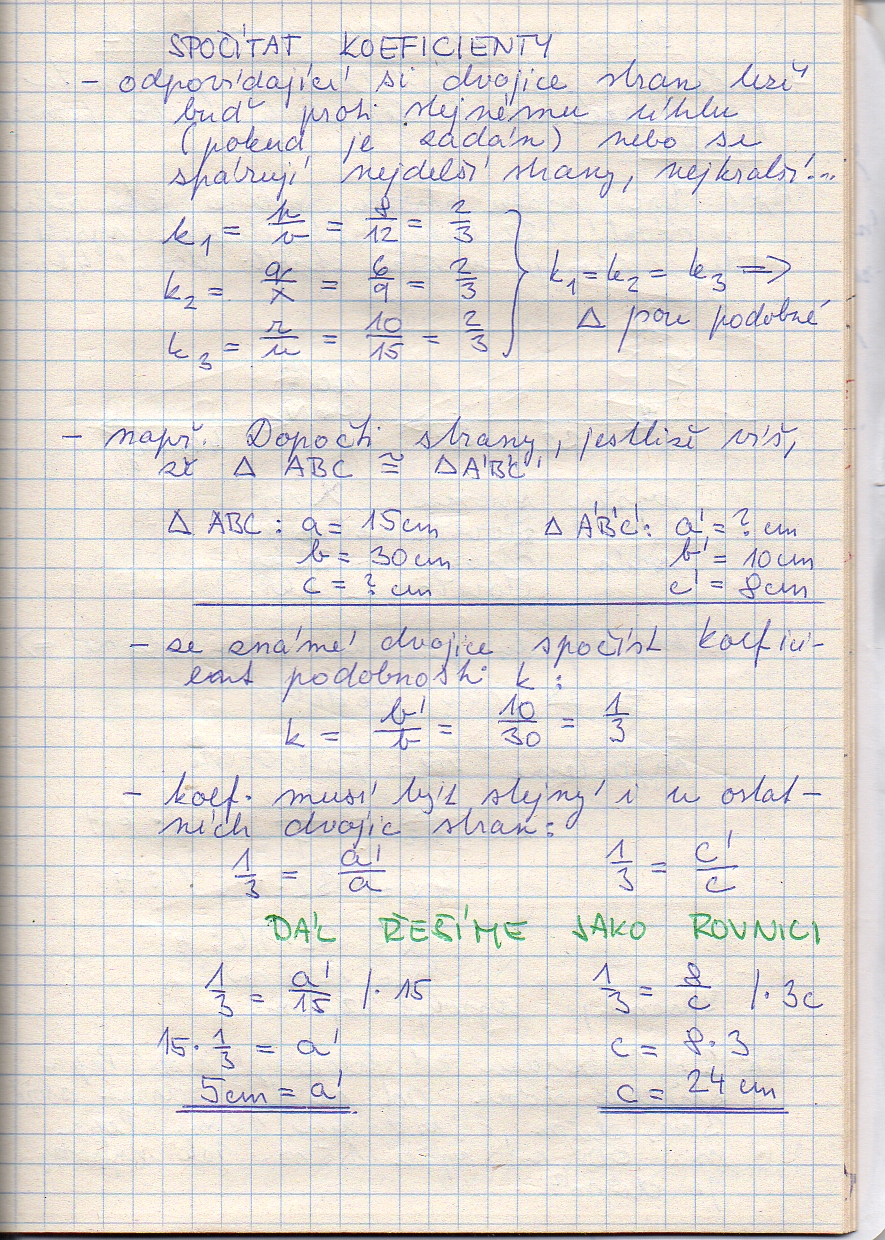 SPOČÍTAT KOEFICIENTY
- odpovídající si dvojice stran leží
buď proti stejnému úhlu
(pokud je zadán) nebo se
spárují nejdelší strany, nejkratší...
k₁ = p/v = 8/12 = 2/3
k₂ = q/x = 6/9 = 2/3 } k₁ = k₂ = k₃ ⇒
k₃ = r/u = 10/15 = 2/3 Δ jsou podobné
- např. Dopočti strany, jestliže víš,
že Δ ABC ≅ ΔA'B'C'
Δ ABC: a = 15cm Δ A'B'C': a' = ? cm
b = 30cm b' = 10cm
c = ? cm c' = 8cm
- ze známé dvojice spočíst koefici-
ent podobnosti k:
k = b'/b = 10/30 = 1/3
- koef. musí být stejný i u ostat-
ních dvojic stran:
1/3 = a'/a 1/3 = c'/c
DÁL ŘEŠÍME JAKO ROVNICI
1/3 = a'/15 /· 15 1/3 = 8/c /· 3c
15 · 1/3 = a' c = 8 · 3
5cm = a' c = 24 cm